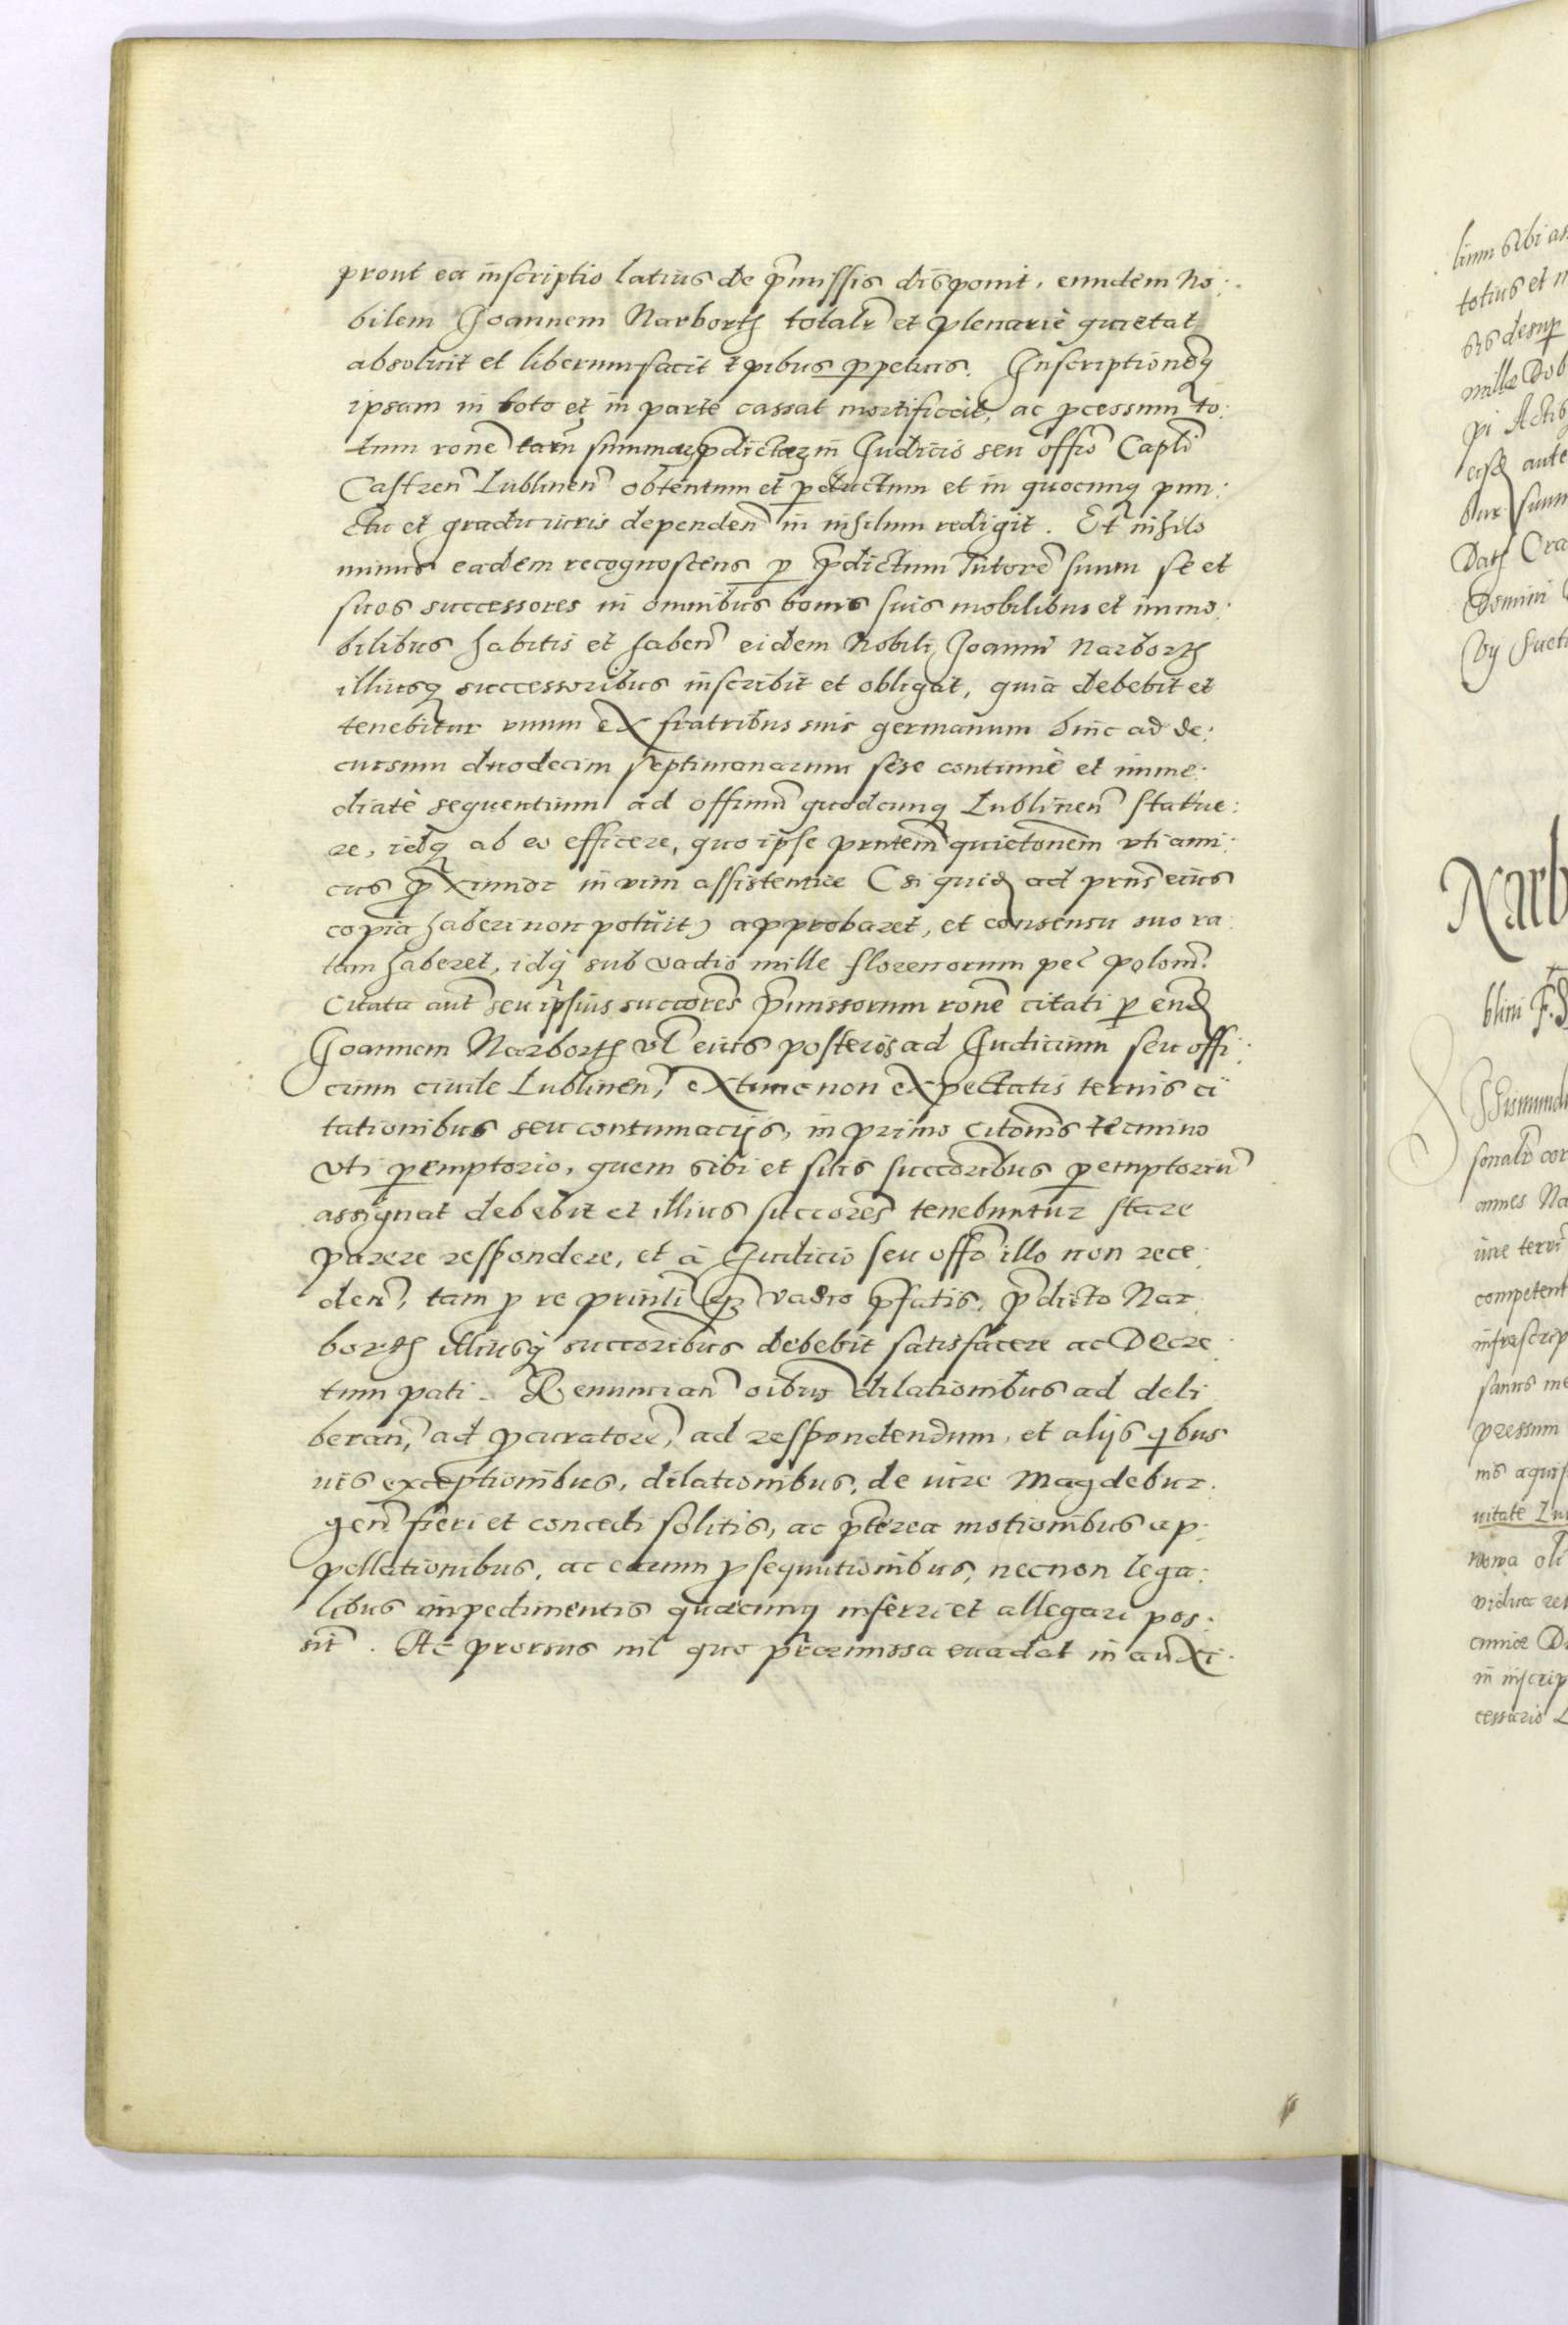 prout ea inscriptio latius de p̃missis disponit, eundem No:
bilem Joannem Narborth totalr̃ et plenarie quietat
absoluit et liberum facit t̃pibus ꝑpetuis. Inscriptionẽq
ipsam in toto et in parte cassat mortificat, ac ꝓcessum to:
tum ronẽ earũ summaꝝ p̃dictaꝝ in Judicio seu offõ Capli
Castreñ Lublineñ obtentum et ꝑductum et in quocunq pun:
ctu et gradu iuris dependeñ in nihilum redigit. Et nihilo
minus eadem recognoscens ꝑ p̃dictum Tutorẽ suum se et
suos successores in omnibus bonis suis mobilibus et immo:
bilibus habitis et habeñ eidem Nobili Joanni Narborth
illiusq successoribus inscribit et obligat, quia debebit et
tenebitur vnum ex fratribus suis germanum hinc ad de:
cursum duodecim septimanarum sese continuè et imme:
diatè sequentium ad officiũ quodcunq Lublineñ statue:
re, idq ab eo efficere, quo ipse pñtem quietõnem vti ami:
cus ꝓximior in vim assistentiæ (siquid ad pñs eius
copia haberi non potuit) approbaret, et consensu suo ra
tam haberet, idq sub vadio mille florenorum pec̃ poloñ.
Citata aut̃ seu ipsius succores p̃missorum ronẽ citati ꝑ eund
Joannem Narborth vl̃ eius posteros ad Judicium seu offi:
cium ciuile Lublineñ, extunc non expectatis ternis ci
tationibus seu contumacijs, in primo citõnis termino
vti ꝑemptorio, quem sibi et suis succoribus ꝑemptoriũ
assignat debebit et illius succores tenebuntur stare
parere respondere, et à Judicio seu offõ illo non rece:
deñ, tam ꝓ re prinli q̃ vadio p̃fatis, p̃dicto Nar
borth illiusq succoribus debebit satisfacere ac Decre
tum pati. Renuncian̄ oibus dilationibus ad deli
berañ, ad ꝓcuratorẽ, ad respondendum, et alijs qibus
uis exceptionibus, dilationibus, de iure Magdebur:
geñ fieri et concedi solitis, ac p̃terea motionibus ap:
pellationibus, ac earum ꝓsequutionibus, necnon lega:
libus impedimentis quæcunq inferri et allegari pos:
sit. Ac prorsus nil quo præmissa euadat in auxi:
lium sibi as
totius et
sis desuꝑ
mille Dob
pi Actis
eisd aute
bur sum
Dat Cra
Domini
Narb
blini F. S
Sigismund
sonalr̃ con
annes Na
iure terr
competent
infrascrip
sanus me
pressum
nis aquis
uitate Lu
noua oli
vidua rel
cunice D
in inscrip
cessario L